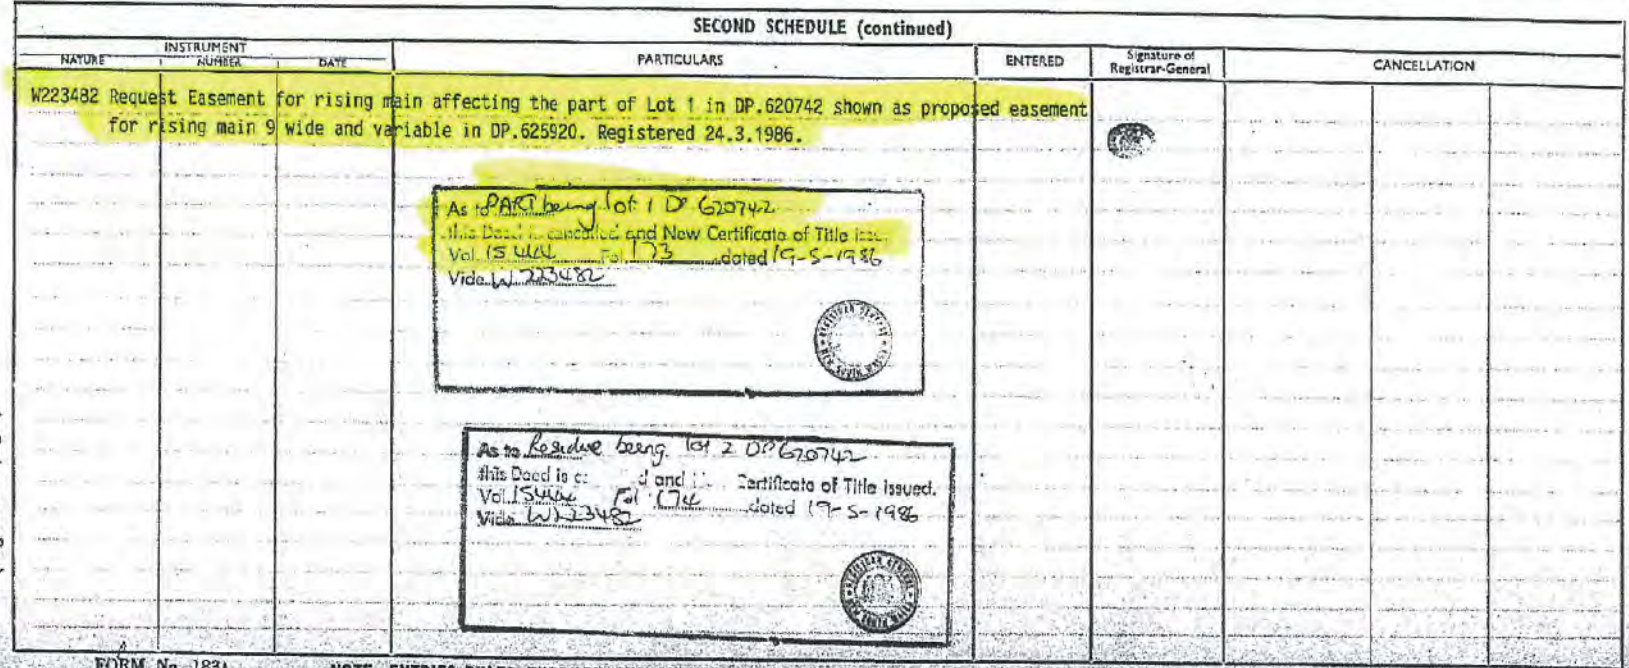 SECOND SCHEDULE (continued)
INSTRUMENT
NATURE NUMBER DATE PARTICULARS ENTERED Signature of Registrar-General CANCELLATION
W223482 Request Easement for rising main affecting the part of Lot 1 in DP.620742 shown as proposed easement
for rising main 9 wide and variable in DP.625920. Registered 24.3.1986.
As to PART being lot 1 DP 620742
this Deed is cancelled and New Certificate of Title
Vol. 15444 Fol. 173 dated 19-5-1986
Vide W 223482
As to Residue being lot 2 DP 620742
this Deed is and Certificate of Title issued.
Vol. 15444 Fol 174 dated 19-5-1986
Vide W223482
FORM No. 183A